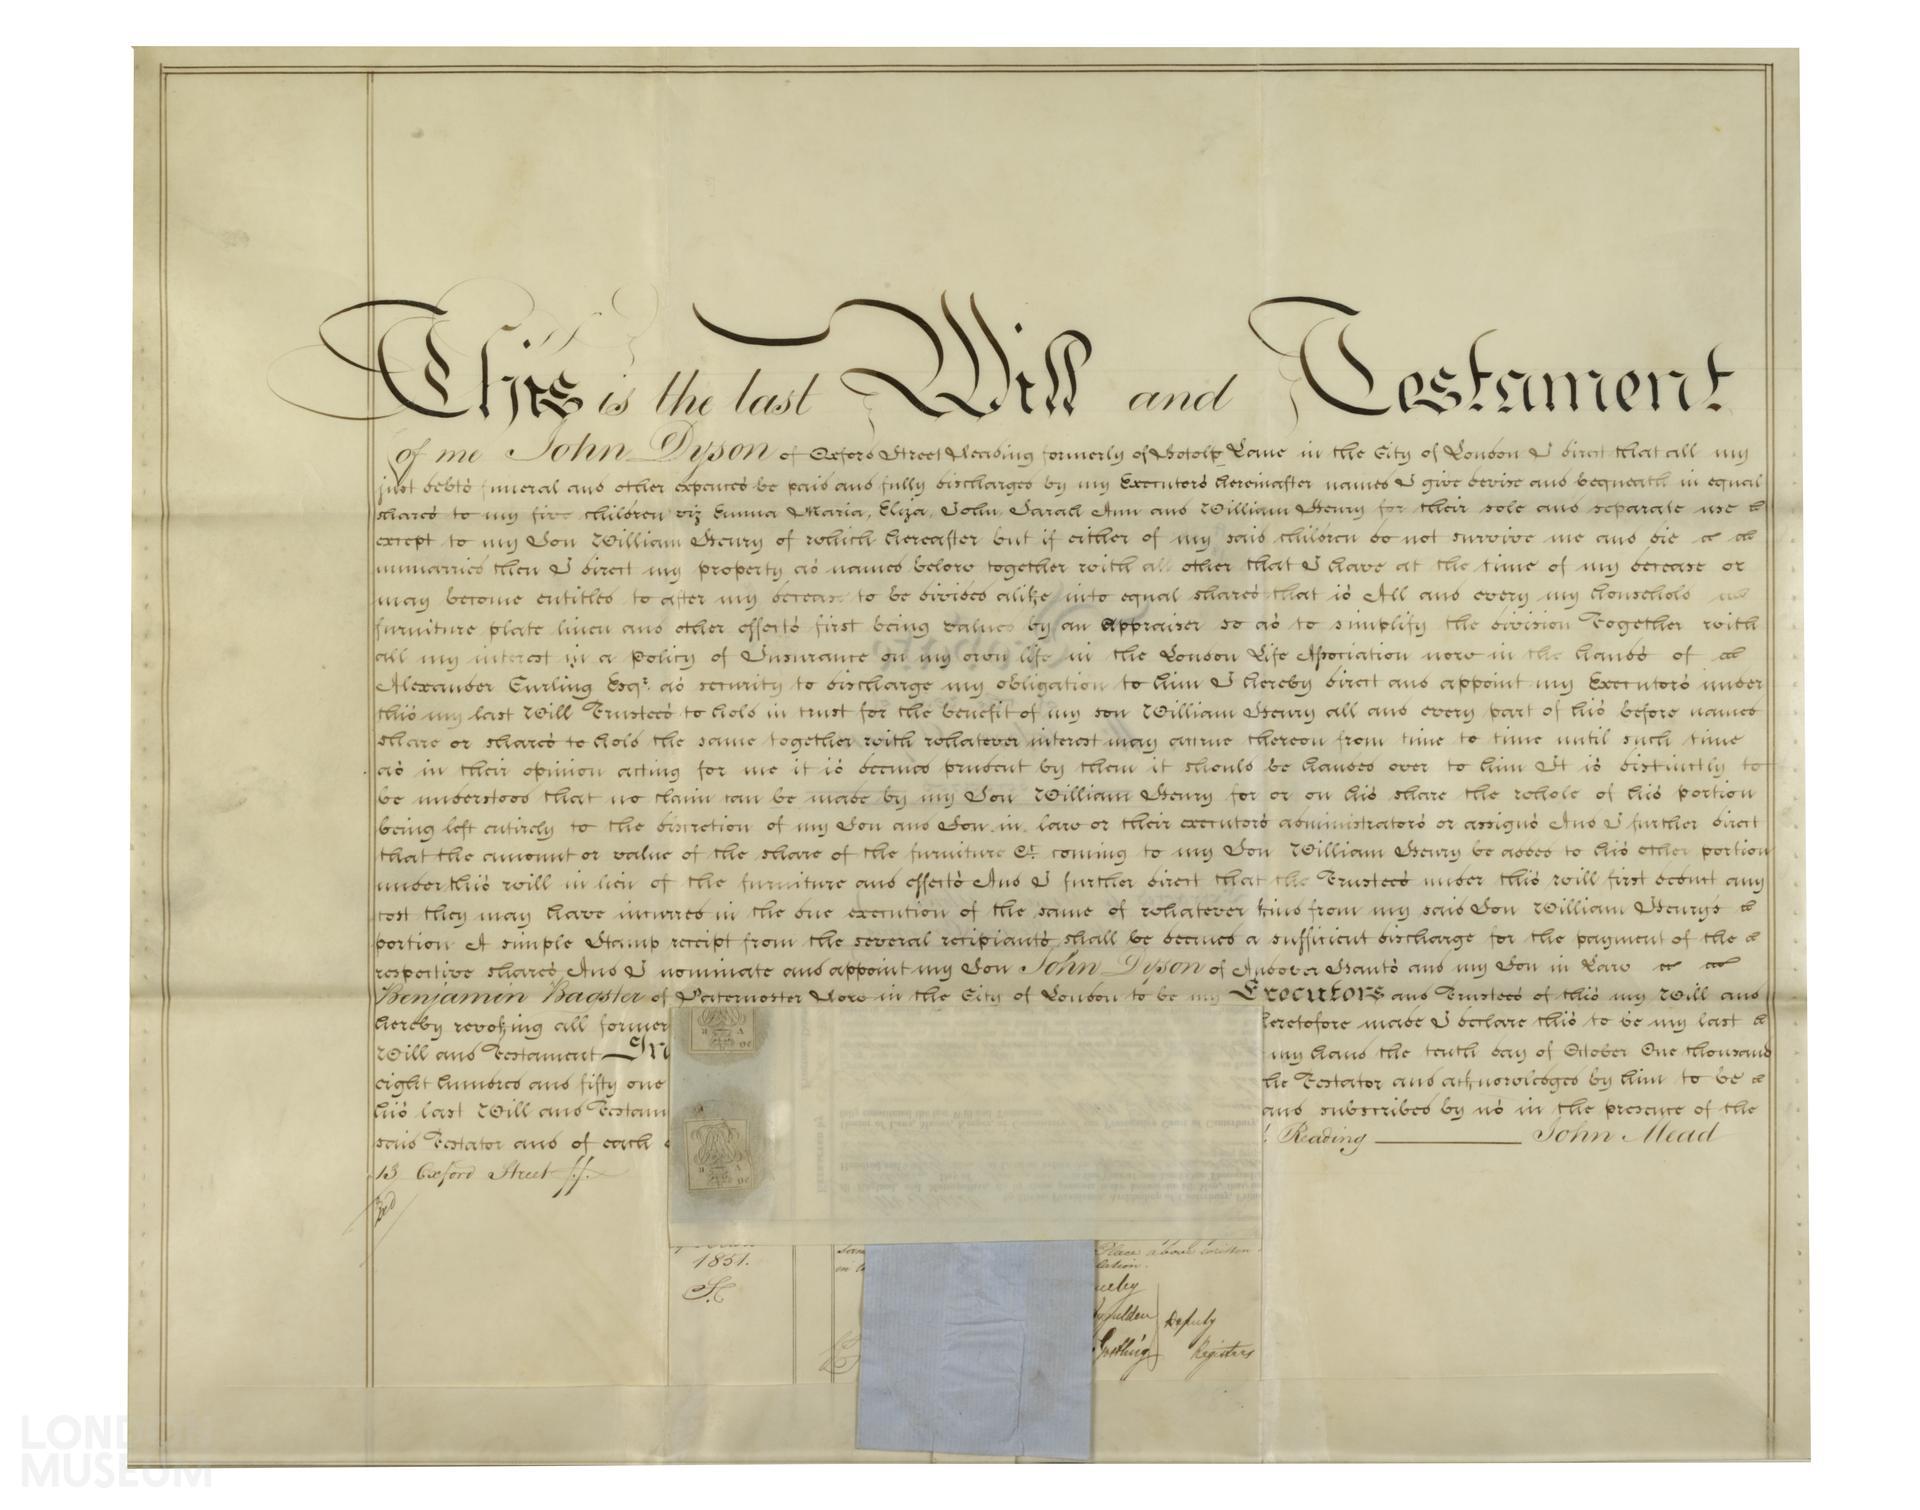 This is the last Will and Testament
of me John Dyson of Oxford Street Reading formerly of Botolp Lane in the City of London I direct that all my
just debts funeral and other expences be paid and fully discharged by my Executors hereinafter named I give devise and bequeath in equal
shares to my five children viz Emma Maria, Eliza, John, Sarah Ann and William Henry for their sole and separate use
except to my Son William Henry of which hereafter but if either of my said children do not survive me and die
unmarried then I direct my property as named below together with all other that I have at the time of my decease or
may become entitled to after my decease to be divided alike into equal shares that is All and every my household
furniture plate linen and other effects first being valued by an Appraiser so as to simplify the division Together with
all my interest in a Policy of Insurance on my own life in the London Life Association now in the hands of
Alexander Curling Esqr. as security to discharge my obligation to him I hereby direct and appoint my Executors under
this my last Will Trustees to hold in trust for the benefit of my son William Henry all and every part of his before named
share or shares to hold the same together with whatever interest may accrue thereon from time to time until such time
as in their opinion acting for me it is deemed prudent by them it should be handed over to him It is distinctly to
be understood that no claim can be made by my Son William Henry for or on his share the whole of his portion
being left entirely to the discretion of my Son and Son in law or their executors administrators or assigns And I further direct
that the amount or value of the share of the furniture &c. coming to my Son William Henry be added to his other portion
under this will in lieu of the furniture and effects And I further direct that the Trustees under this will first deduct any
cost they may have incurred in the due execution of the same of whatever kind from my said Son William Henry's
portion A simple Stamp receipt from the several recipiants shall be deemed a sufficient discharge for the payment of the
respective shares And I nominate and appoint my Son John Dyson of Andover Hants and my Son in Law
Benjamin Bagster of Paternoster Row in the City of London to be my Executors and Trustees of this my Will and
hereby revoking all former heretofore made I declare this to be my last
Will and Testament In my hand the tenth day of October One thousand
eight hundred and fifty one the Testator and acknowledged by him to be
his last Will and Testam and subscribed by us in the presence of the
said Testator and of each Reading John Mead
13 Oxford Street
1851. Place above written
Deputy
Registers
LONDON
MUSEUM